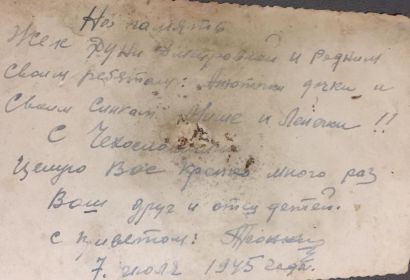 На память
Жек Дуни Дмитровной и родним
своим ребятам: Анютки дочки и
Своим Синкам Мише и Лёночки !!
С Чехослов
Целую Вас крепко много раз
Ваш друг и отец детей.
с приветом:
7. июля 1945 года.